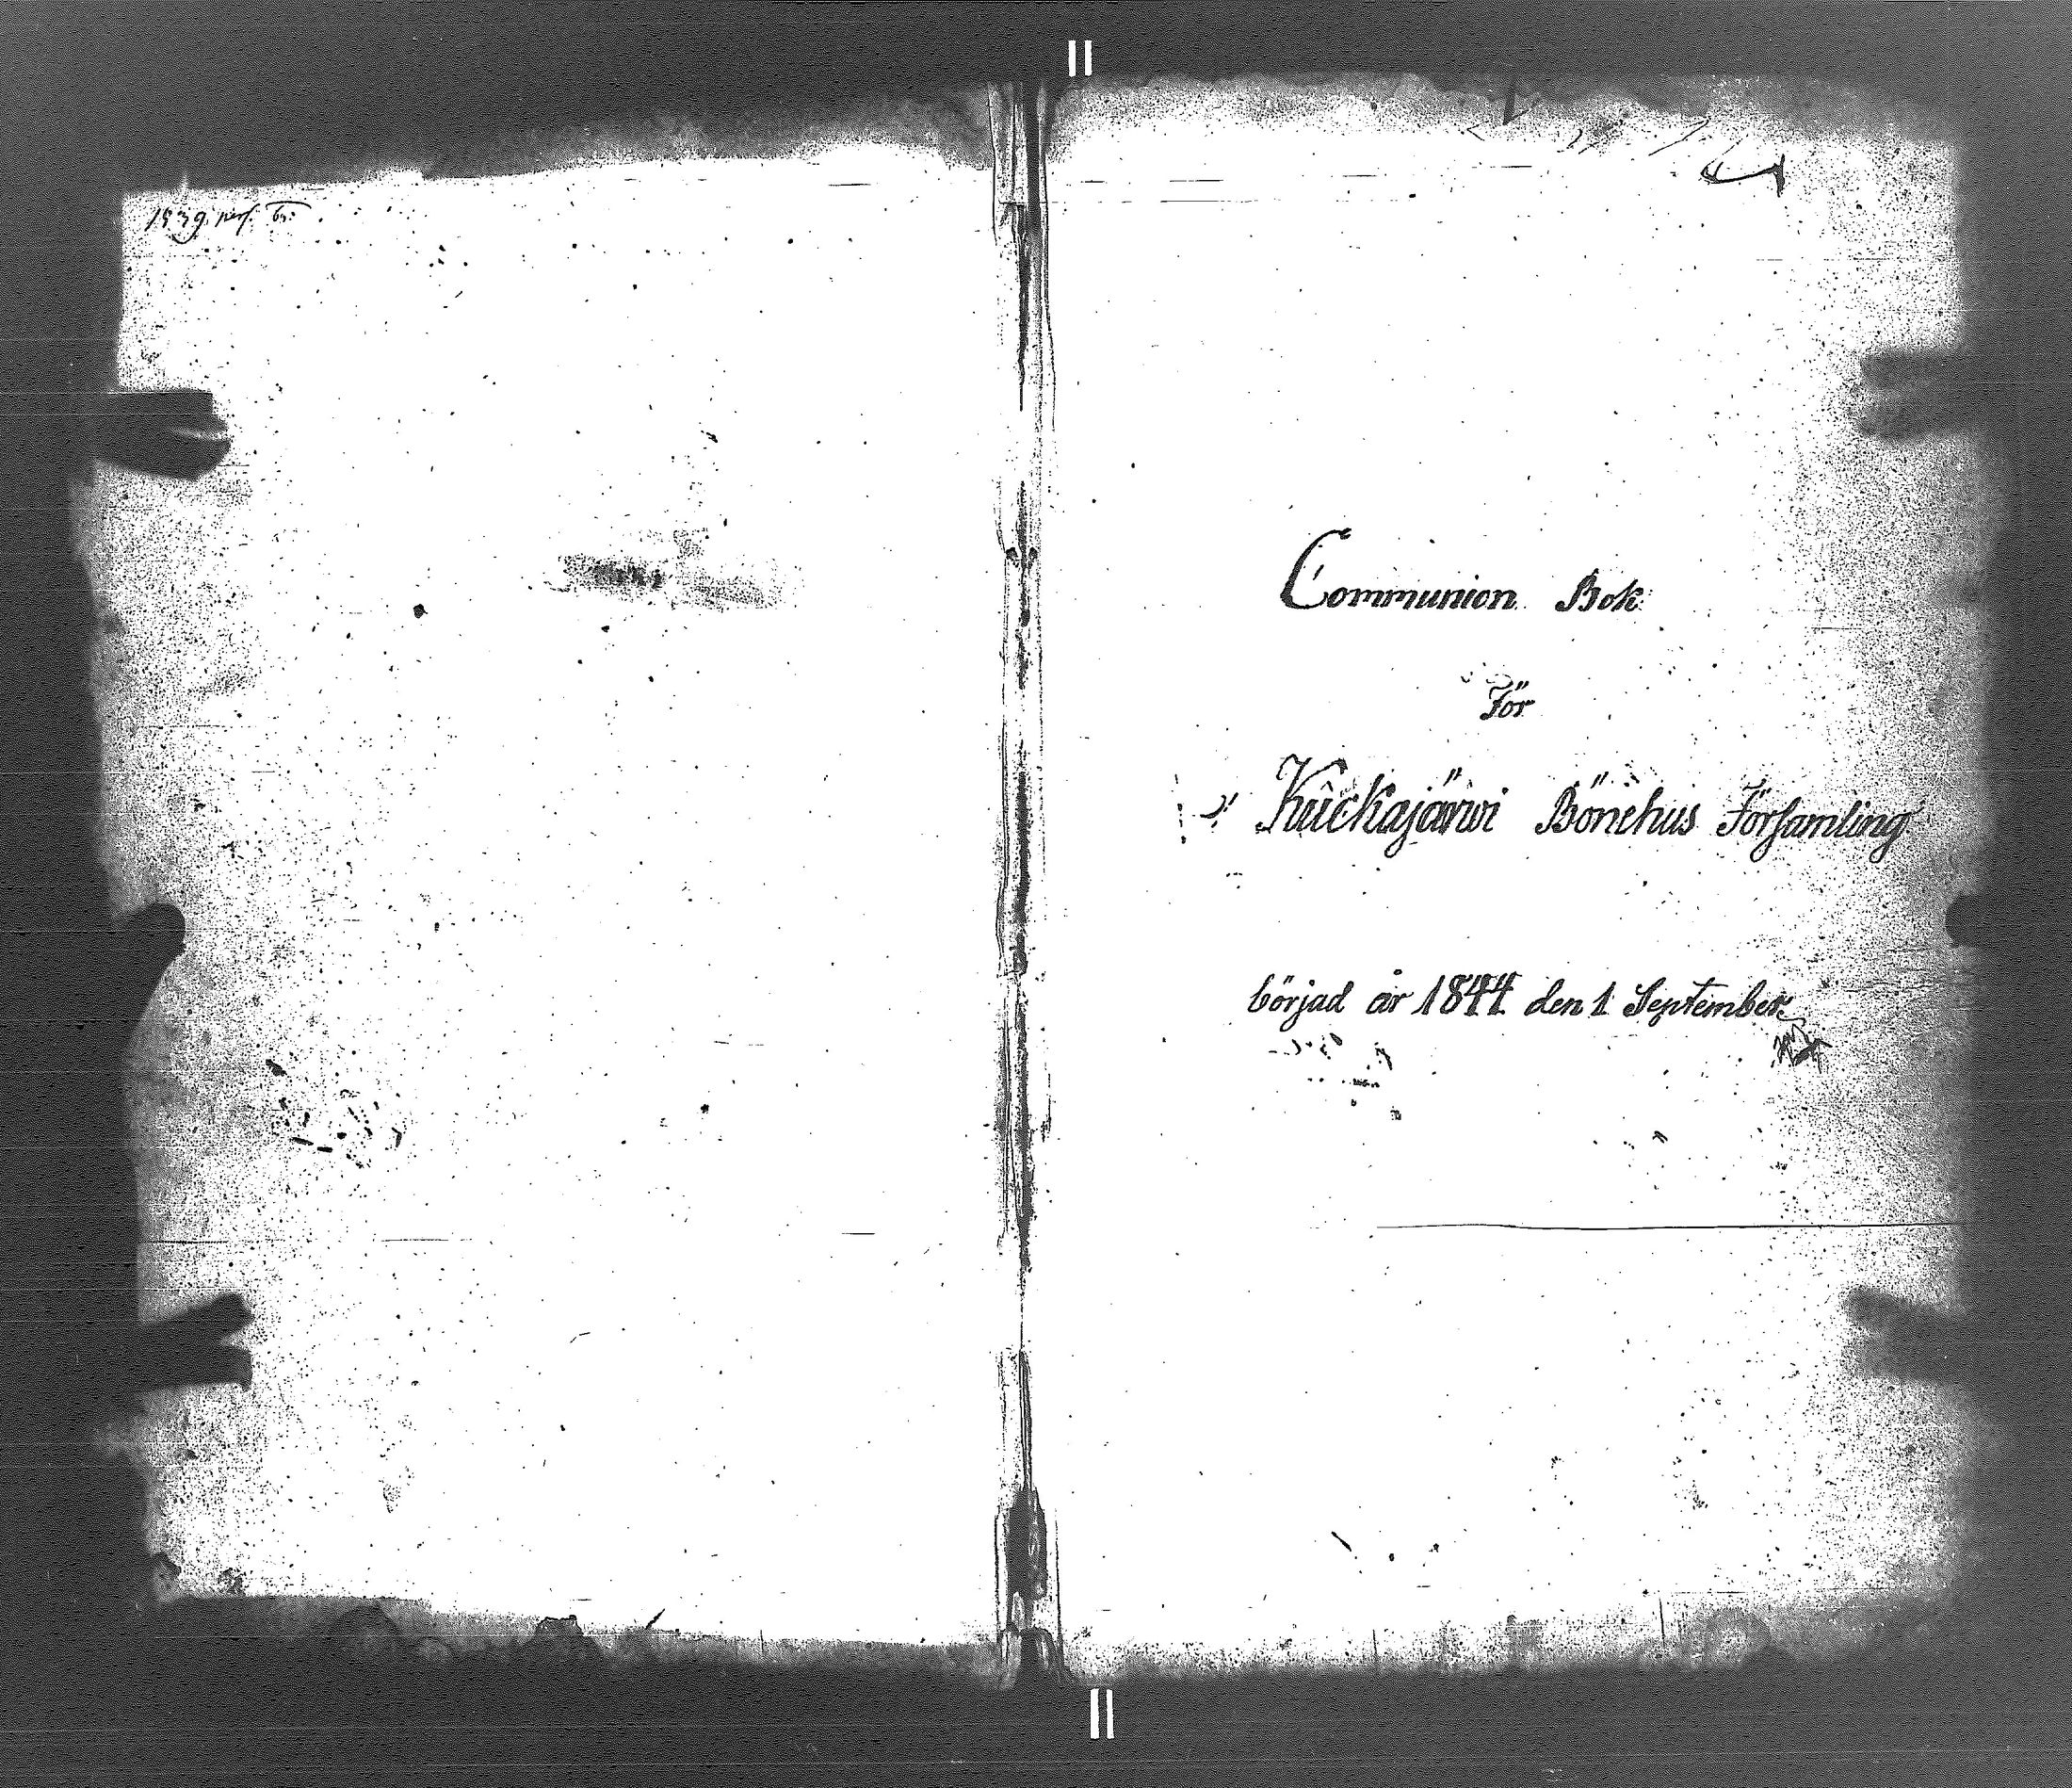 1939 
Communion Bok
För
Kuckajärwi Bönehus Församling
börjad år 1844 den 1 September.